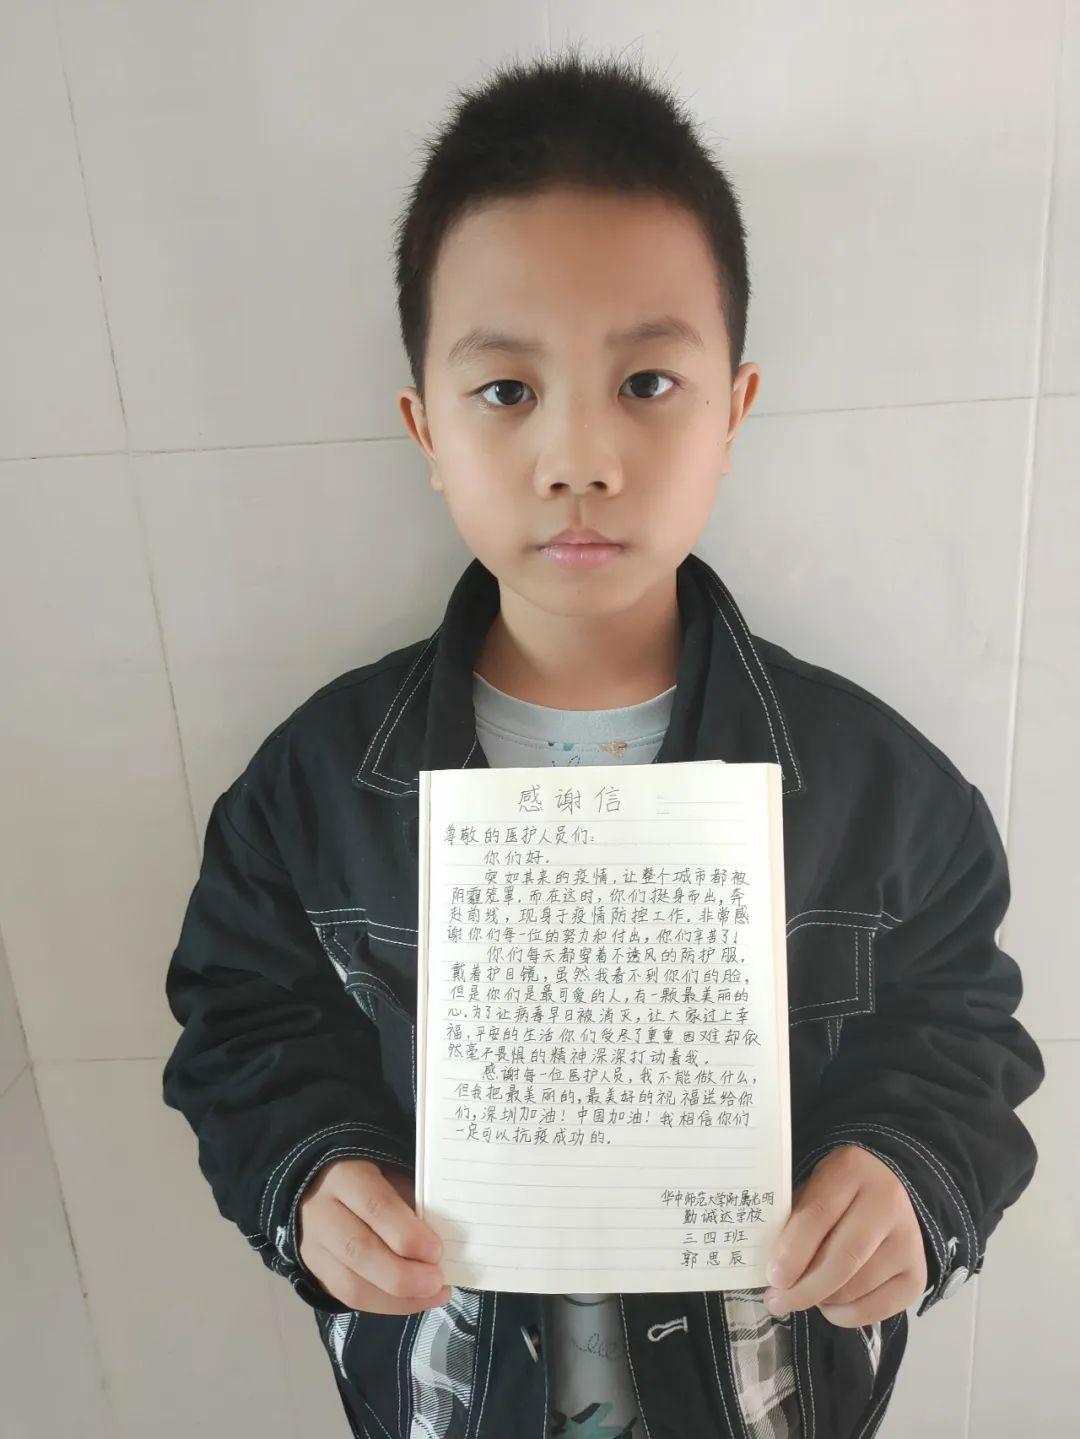 感谢信
尊敬的医护人员们：
你们好．
突如其来的疫情，让整个城市都被
阴霾笼罩．而在这时，你们挺身而出，奔
赴前线，现身于疫情防控工作．非常感
谢你们每一位的努力和付出，你们辛苦了！
你们每天都穿着不透风的防护服，
戴着护目镜，虽然我看不到你们的脸，
但是你们是最可爱的人，有一颗最美丽的
心．为了让病毒早日被消灭，让大家过上幸
福，平安的生活你们受尽了重重困难却依
然毫不畏惧的精神深深打动着我．
感谢每一位医护人员，我不能做什么，
但我把最美丽的，最美好的祝福送给你
们，深圳加油！中国加油！我相信你们
一定可以抗疫成功的．
华中师范大学附属光明
勤诚达学校
三四班
郭思辰